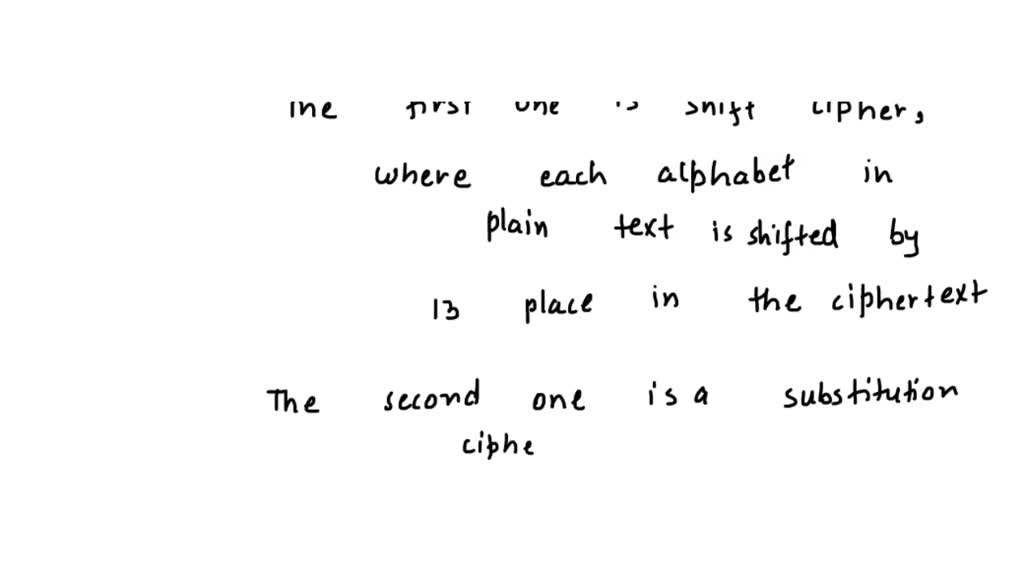 The first one is shift cipher,
where each alphabet in
plain text is shifted by
13 place in the ciphertext
The second one is a substitution
ciphe